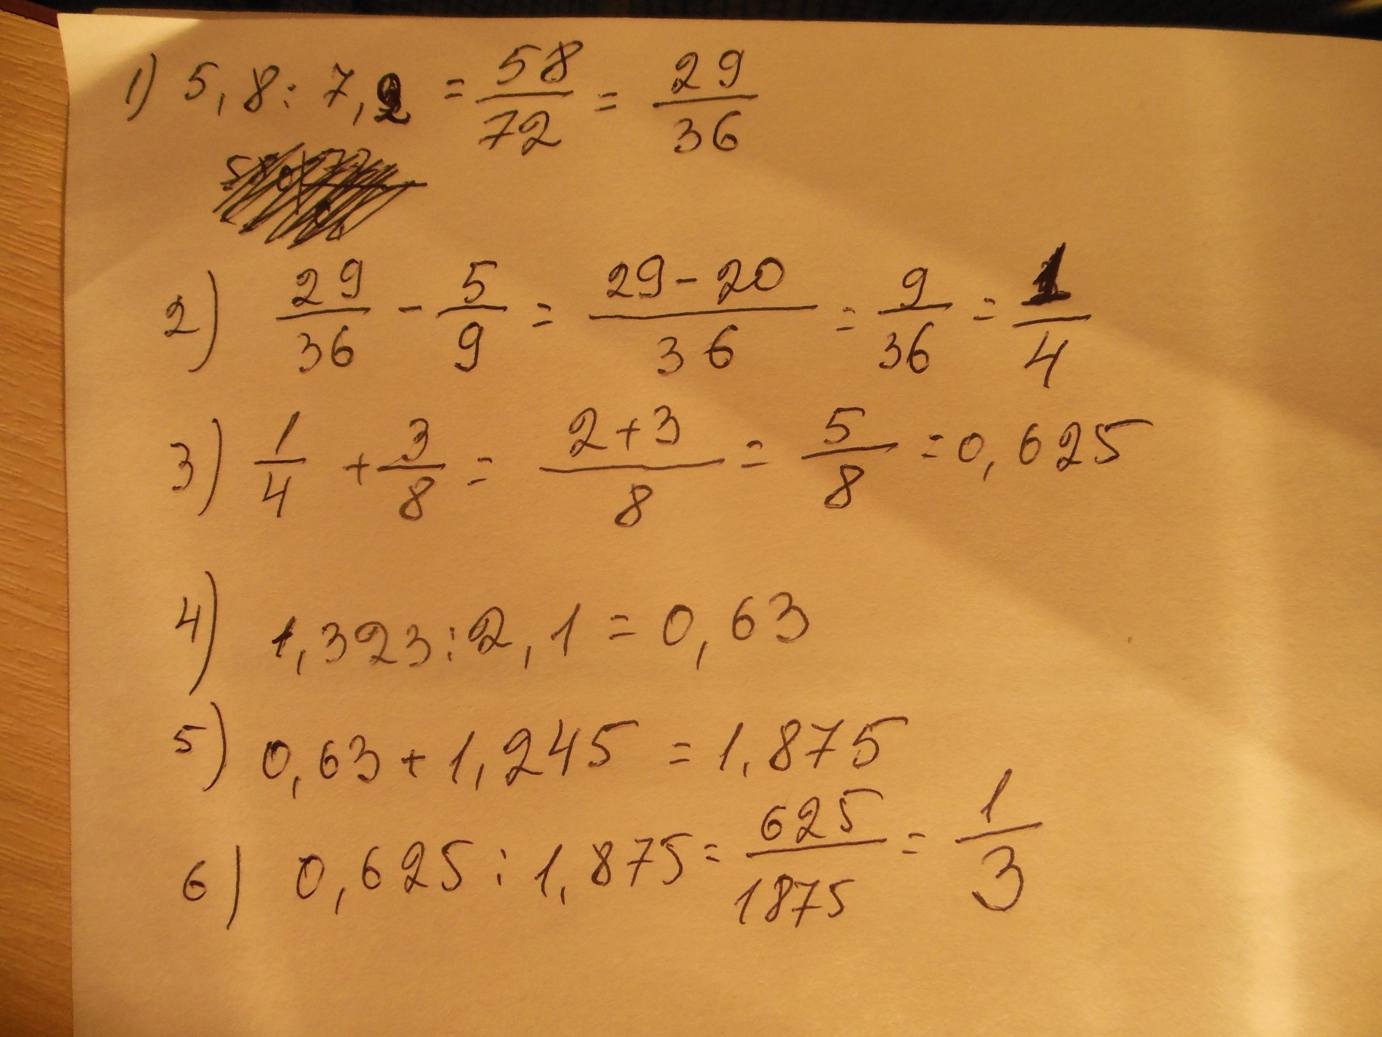 1) 5,8 : 7,2 = 58/72 = 29/36
2) 29/36 - 5/9 = (29-20)/36 = 9/36 = 1/4
3) 1/4 + 3/8 = (2+3)/8 = 5/8 = 0,625
4) 1,323 : 2,1 = 0,63
5) 0,63 + 1,245 = 1,875
6) 0,625 : 1,875 = 625/1875 = 1/3